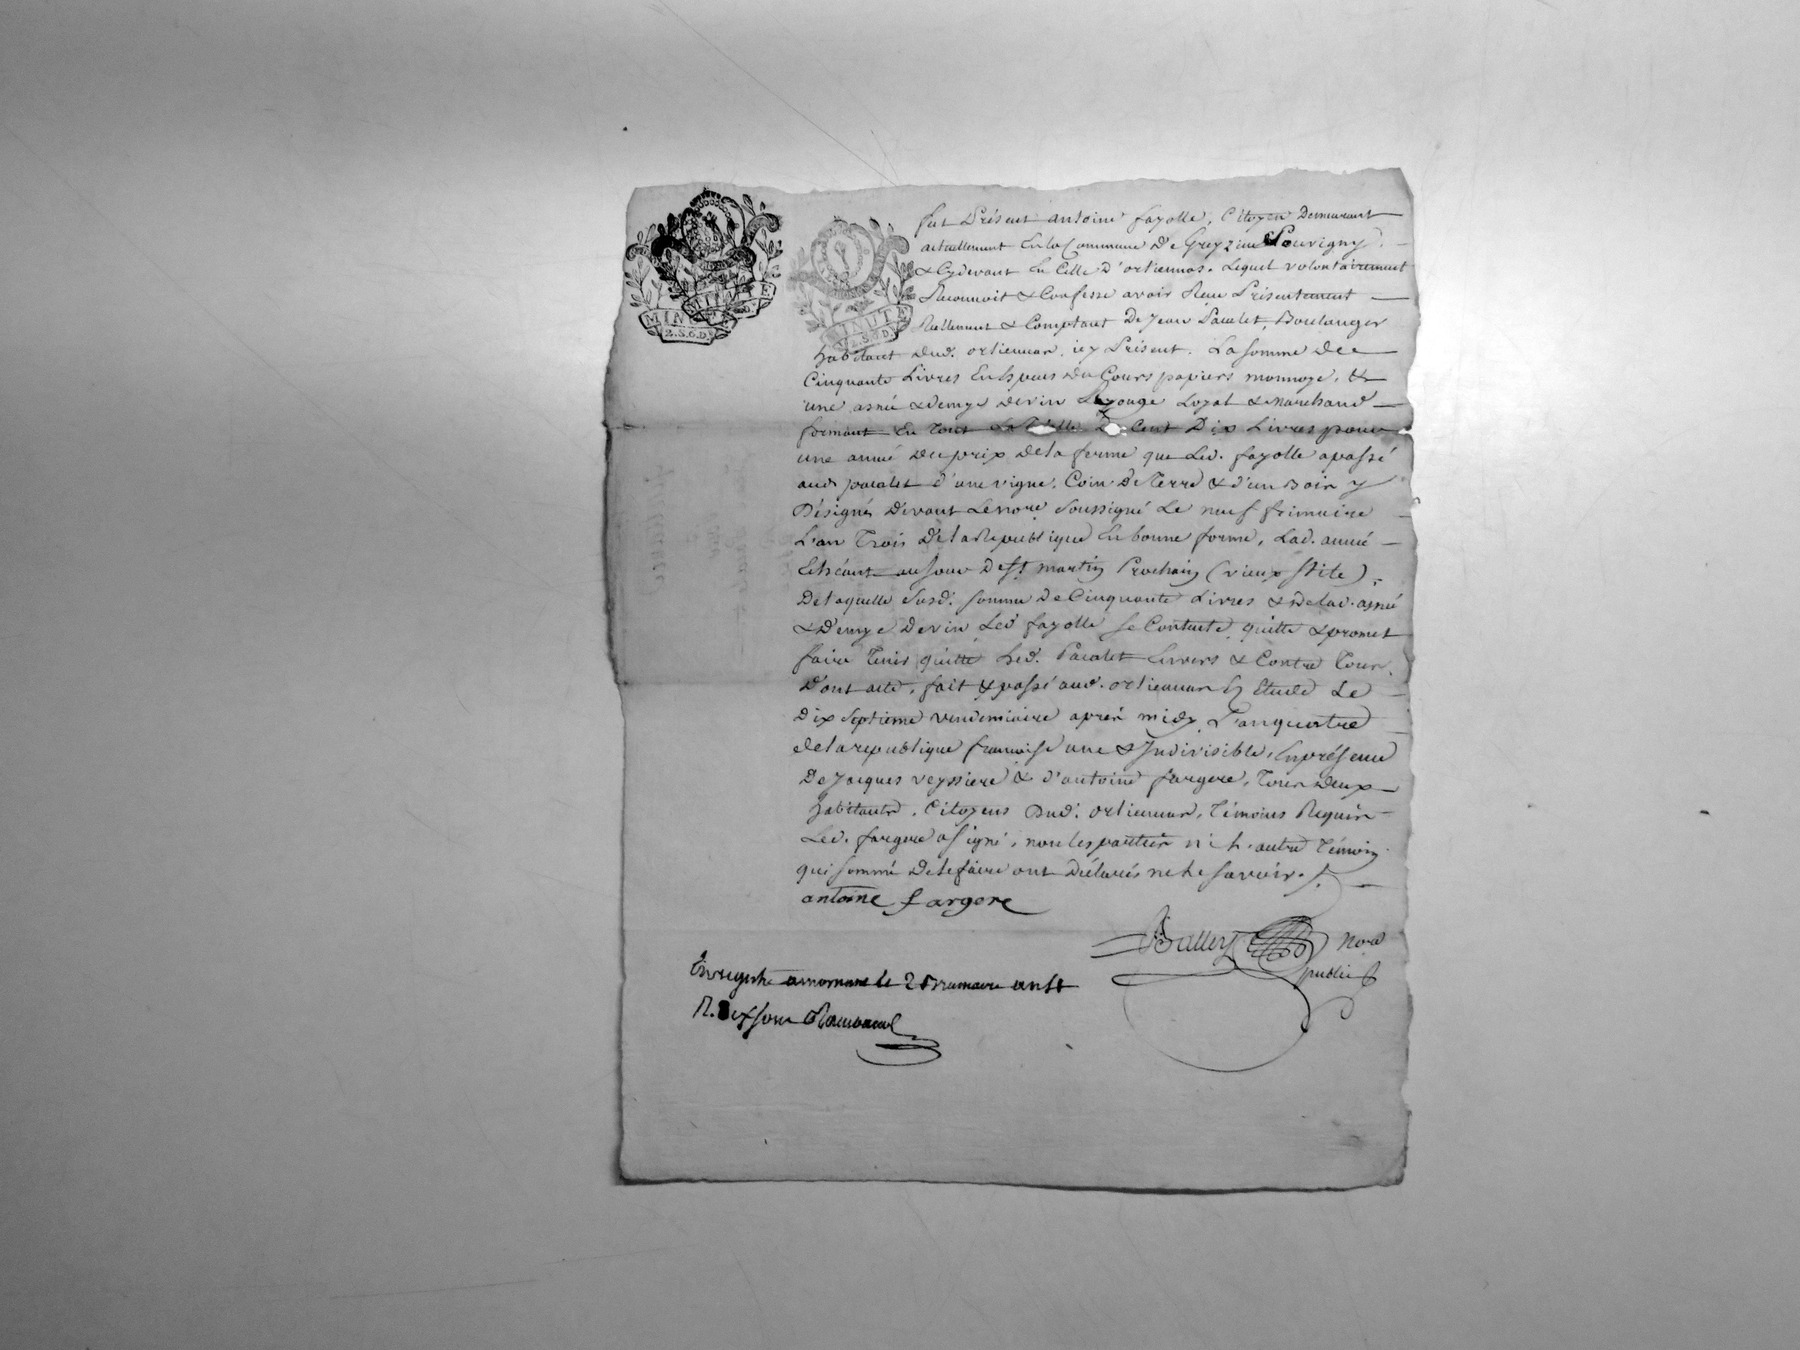 MINUTE
2.S.6.D
MINUTE
2.S.6.D
fut Présent antoine fayolle, Citoyen Demeurant
actuellement En la Commune De Grezieu Souvigny
& Cydevant En Celle D'orliennas. Lequel volontairement
Reconnoit & Confesse avoir Reçu Présentement
Réellement & Comptant De Jean Pacalet, Boulanger
habitant Dud. orliennas, icy Présent. La Somme De
Cinquante Livres En Espèces Du Cours papiers monnoye, &
une asnée & demye De vin Rouge Loyal & Marchand
formant En Tout La De Cent Dix Livres pour
une année Du prix De la ferme que Led. fayolle a passé
aud. pacalet d'une vigne, Coin De Terre & d'un Bois y
Désignés Devant Le no.re Soussigné Le neuf frimaire
L'an Trois De la Republique En bonne forme, Lad. année
Echéant au Jour De St. martin Prochain (vieux Stile).
De laquelle Susd. Somme De Cinquante Livres & De lad. asnée
& Demye De vin Led. fayolle Se Contente, quitte & promet
faire Tenir quitte Led. Pacalet Envers & Contre Tous.
D'ont acte, fait & passé aud. orliennas En Etude Le
Dix Septieme vendemiaire après midy L'an quatre
de la republique françoise une & Indivisible, En présence
De Jacques veyssiere & d'antoine fargere, Tous Deux
habitants, Citoyens Dud. orliennas, Témoins Requis
Led. fargere a Signé, non les parties ni L'autre Témoin
qui Sommé De le faire ont Déclarés ne le Savoir.
antoine fargere
no.re
public
Enregistré a mornant le 2 Brumaire an 4
R.